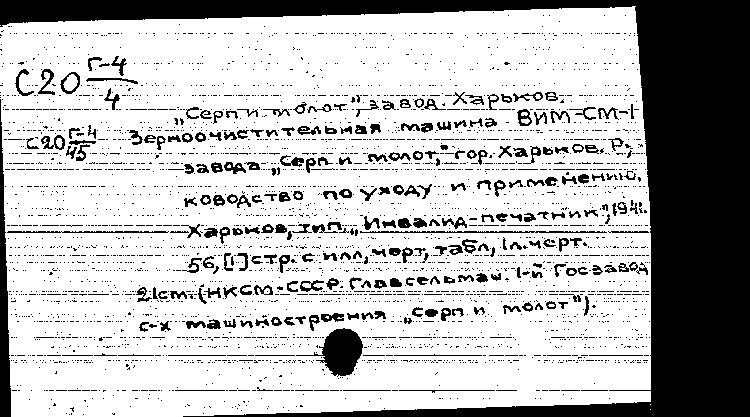 С20 Г-4/4
„Серп и молот", завод. Харьков.
С20 Г-4/45
Зерноочистительная машина ВИМ-СМ-1
завода „Серп и молот," гор. Харьков. Ру-
ководство по уходу и применению.
Харьков, тип. „Инвалид-печатник", 1941.
56, [1] стр. с илл, черт, табл, 1л. черт.
21см. (НКСМ-СССР. Главсельмаш. 1-й Госзавод
с-х машиностроения „Серп и молот").